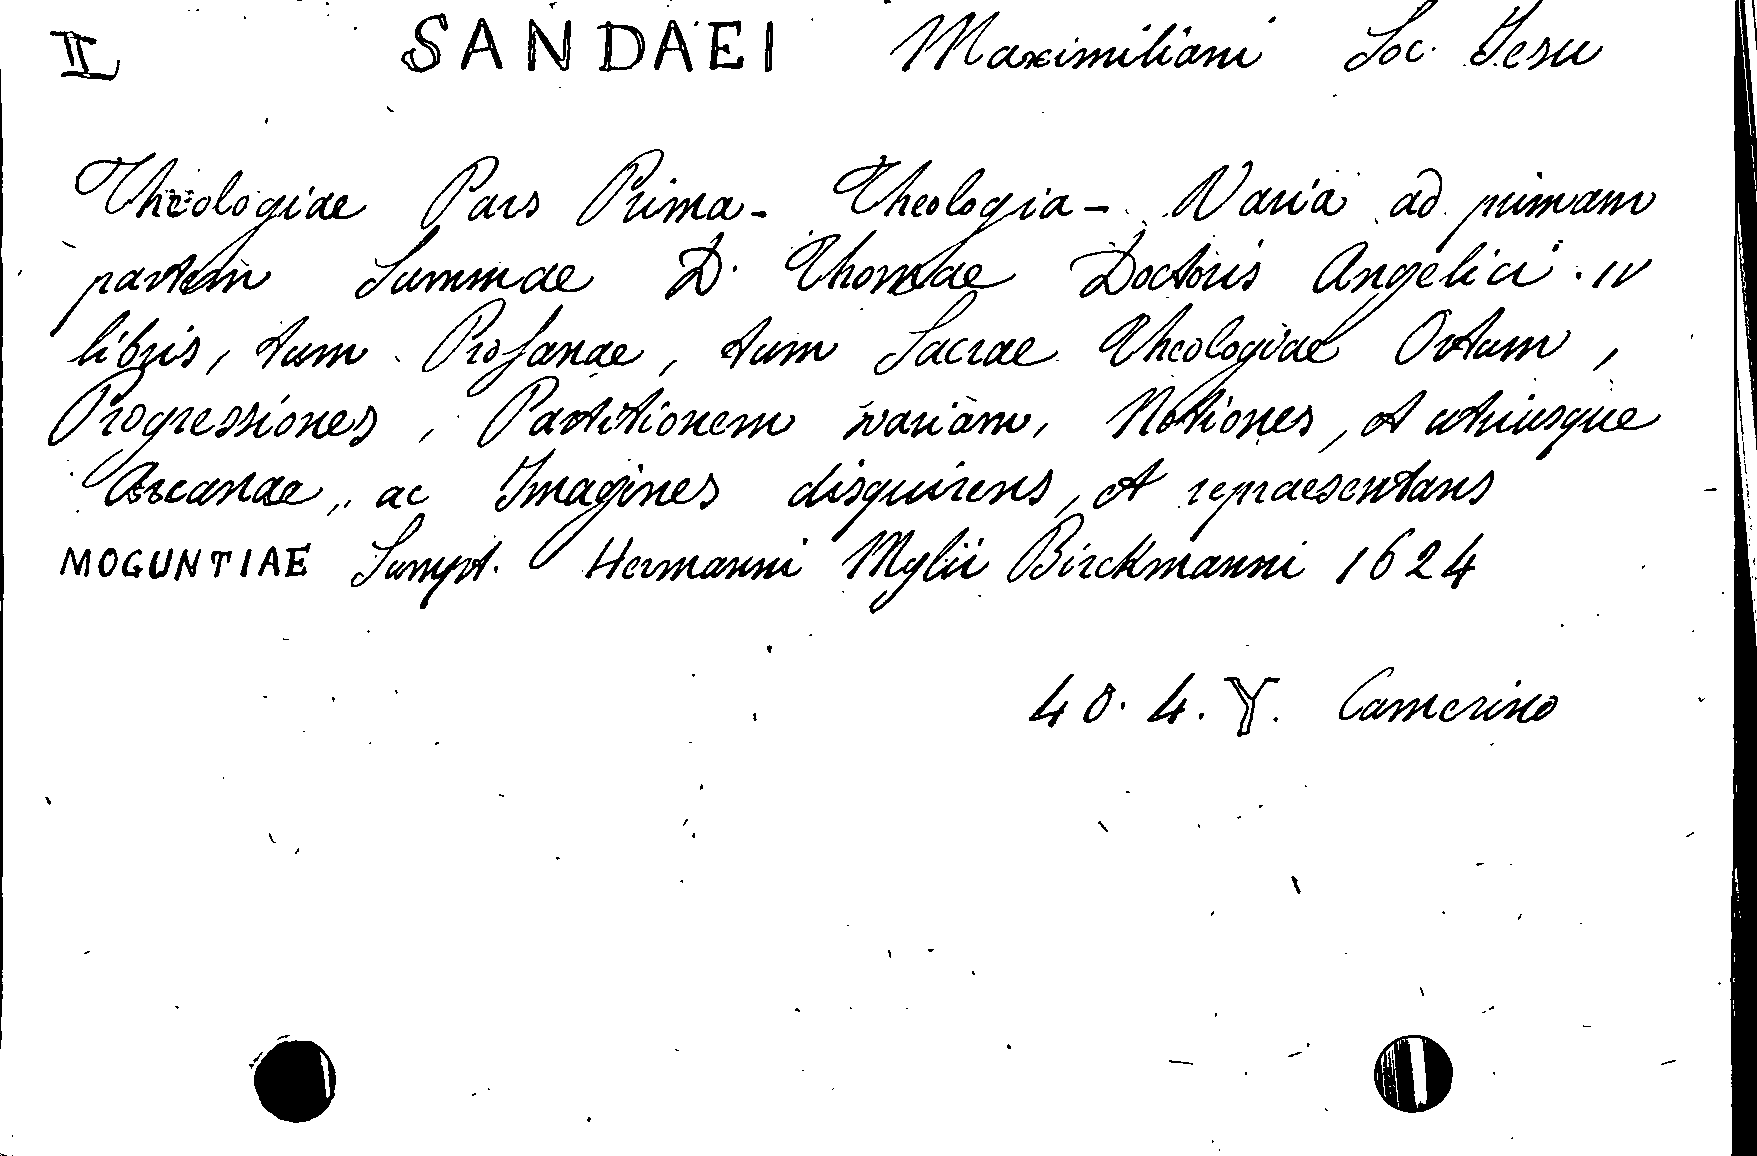 II SANDAEI Maximiliani Soc. Jesu
Theologiae Pars Prima - Theologia - Varia ad primam
partem Summae D. Thomae Doctoris Angelici. IV
libris, tum Profanae, tum Sacrae Theologiae Ortum,
Progressiones, Partitionem variam, Notiones, et utriusque
Arcanae, ac Imagines disquirens, et repraesentans
MOGUNTIAE Sumpt. Hermanni Mylii Birckmanni 1624
40. 4. Y. Camerino